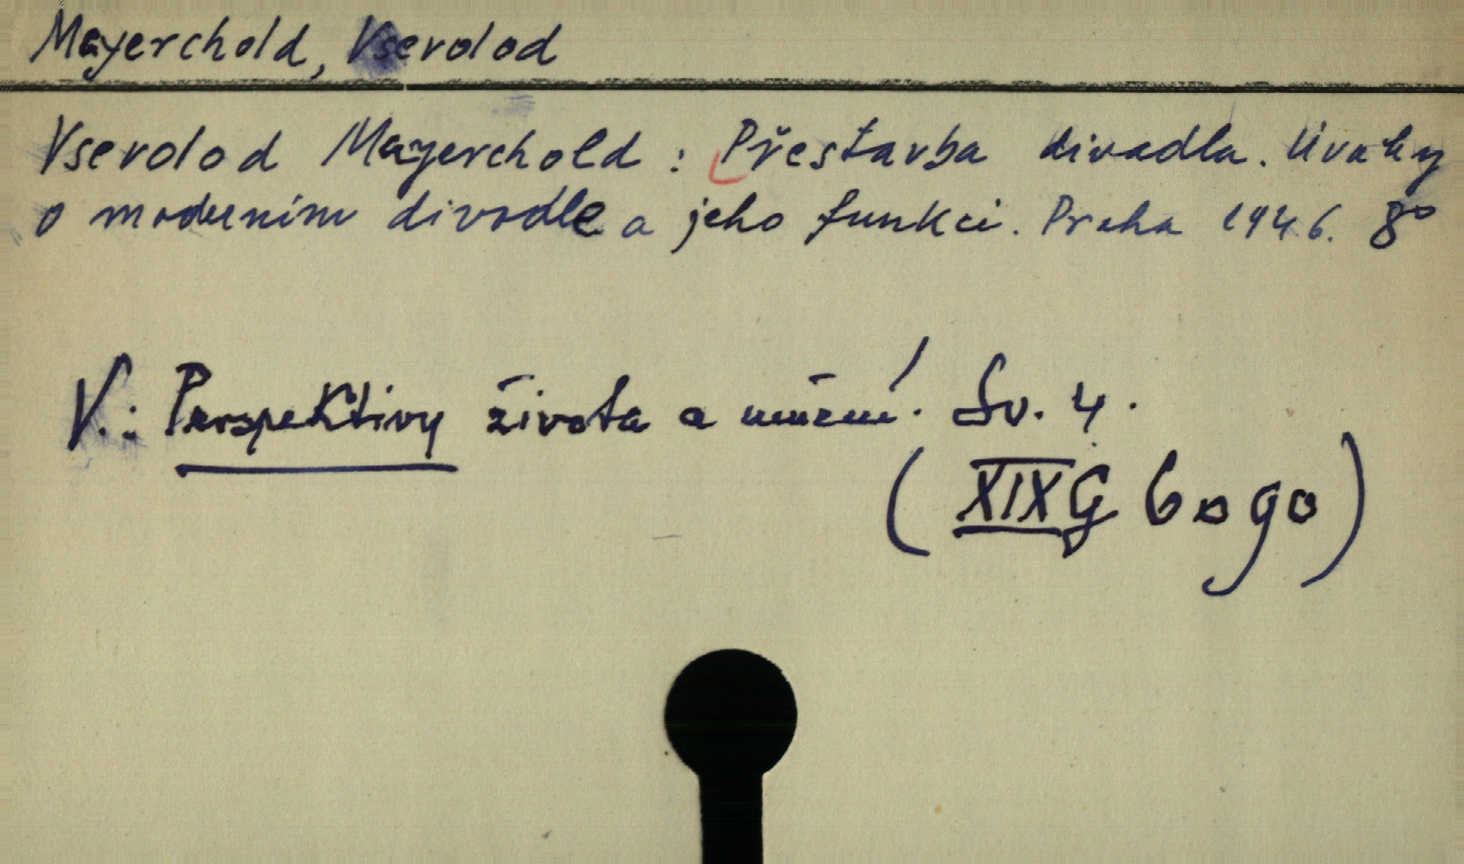 Mayerchold, Vsevolod
Vsevolod Mayerchold: Přestavba divadla. Úvahy
o moderním divadle a jeho funkci. Praha 1946. 8°
V: Perspektivy života a umění. Sv. 4.
(XIX G 6090)